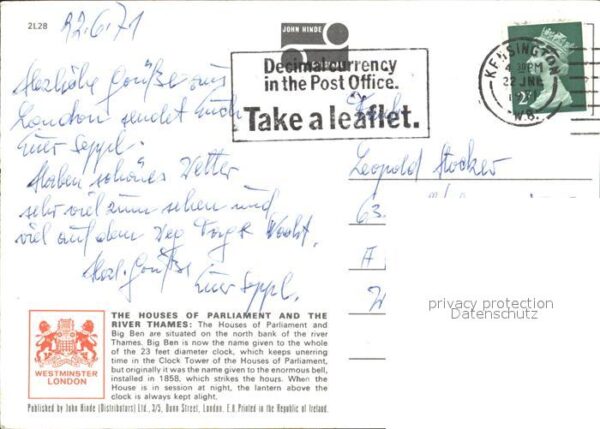 2L28
22.6.71
JOHN HINDE
Decimal currency
in the Post Office.
Take a leaflet.
KENSINGTON
4.30PM
22 JNE
W.8.
Herzliche Grüße aus
London sendet Euch
Euer Seppl.
Haben schönes Wetter
sehr viel zum sehen und
viel auf dem Weg Tag & Nacht.
Herzl. Grüße
Euer Seppl.
Leopold Stocker
63
A
privacy protection
Datenschutz
WESTMINSTER
LONDON
THE HOUSES OF PARLIAMENT AND THE
RIVER THAMES: The Houses of Parliament and
Big Ben are situated on the north bank of the river
Thames. Big Ben is now the name given to the whole
of the 23 feet diameter clock, which keeps unerring
time in the Clock Tower of the Houses of Parliament,
but originally it was the name given to the enormous bell,
installed in 1858, which strikes the hours. When the
House is in session at night, the lantern above the
clock is always kept alight.
Published by John Hinde (Distributors) Ltd., 3/5, Dunn Street, London, E.8 Printed in the Republic of Ireland.